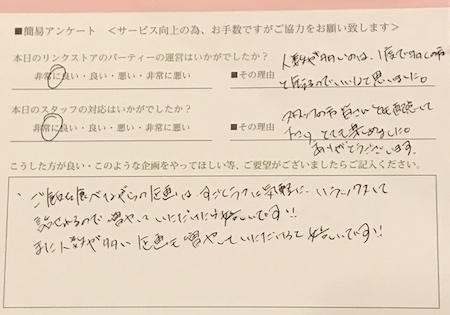 ■簡易アンケート <サービス向上の為、お手数ですがご協力をお願い致します>
本日のリンクストアのパーティーの運営はいかがでしたか？
非常に良い・良い・悪い・非常に悪い
■その理由
人数が多いのは、1度で多くの方
と話せるのでいいなと思いました。
本日のスタッフの対応はいかがでしたか？
非常に良い・良い・悪い・非常に悪い
■その理由
スタッフの方皆さいとても
とても楽めました。
ありがとうございます。
こうした方が良い・このような企画をやってほしい等、ご要望がございましたらご記入ください。
・ご飯を食べながらの企画は、すごくラフに気軽に、リラックスして
話せるので増やしていただけたら嬉しいです!!
また人数が多い企画も増やしていただけると嬉しいです!!